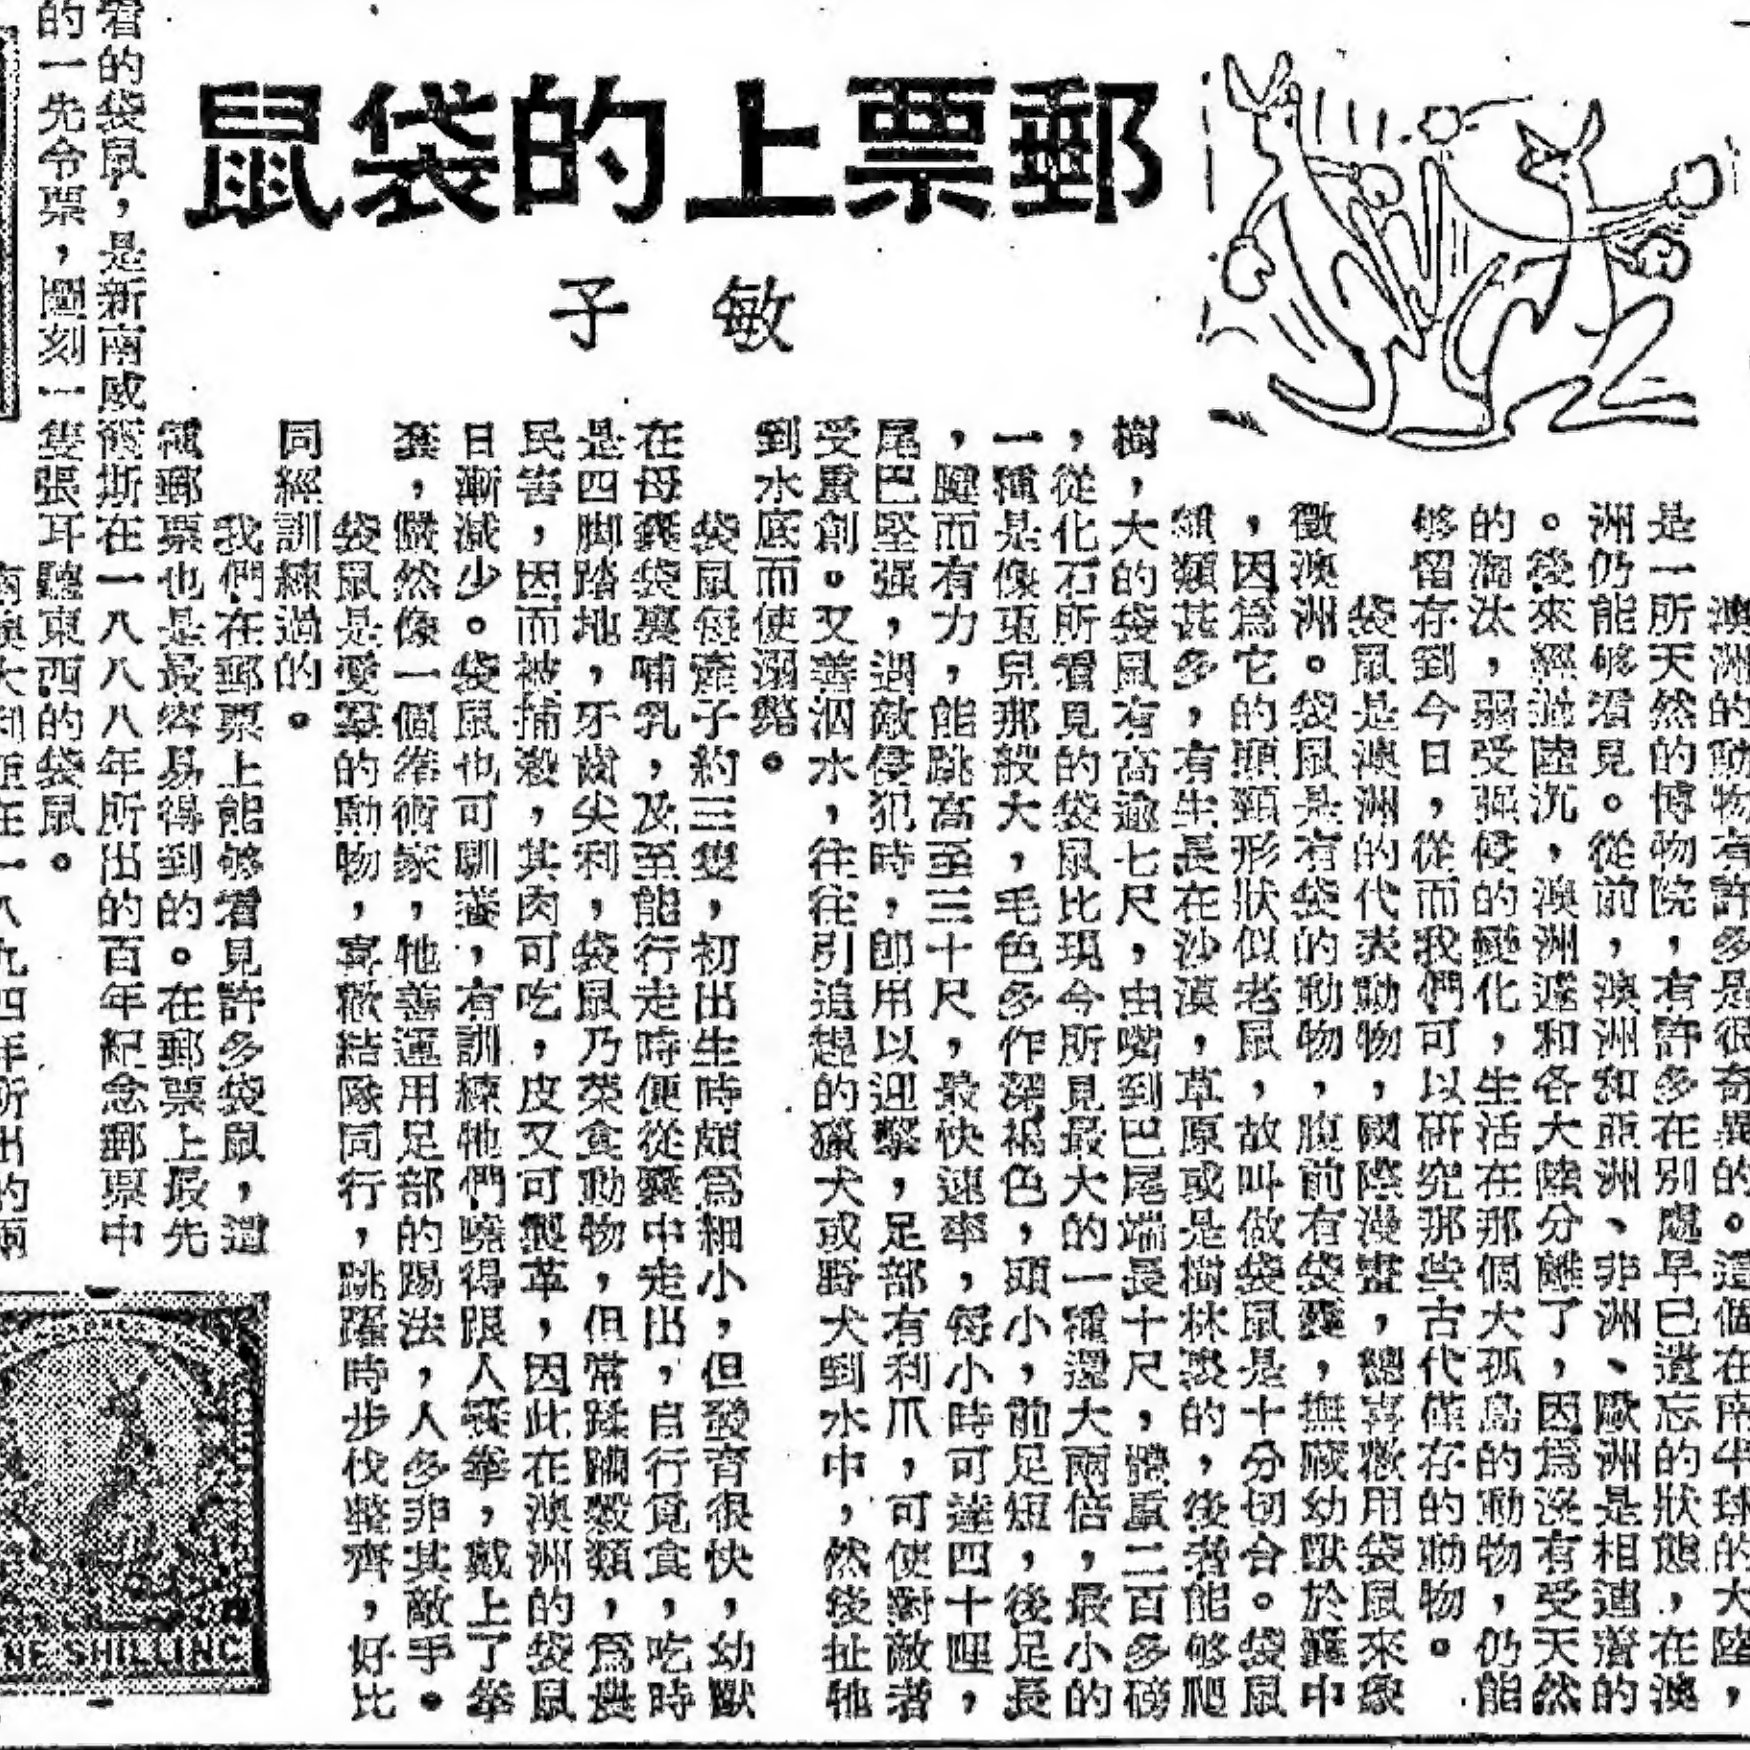 郵票上的袋鼠
子敏
澳洲的動物有許多是很奇異的。這個在南半球的大陸，
是一所天然的博物院，有許多在別處早已遺忘的狀態，在澳
洲仍能够看見。從前，澳洲和亞洲、非洲、歐洲是相連着的
。後來經過陸沉，澳洲遂和各大陸分離了，因爲沒有受天然
的淘汰，弱受强侵的變化，生活在那個大孤島的動物，仍能
够留存到今日，從而我們可以研究那些古代僅存的動物。
袋鼠是澳洲的代表動物，國際漫畫，總喜歡用袋鼠來象
徵澳洲。袋鼠是有袋的動物，腹前有袋囊，撫藏幼獸於囊中
，因爲它的頭頸形狀似老鼠，故叫做袋鼠是十分切合。袋鼠
種類甚多，有生長在沙漠，草原或是樹林裏的，後者能够爬
樹，大的袋鼠有高逾七尺，由嘴到巴尾端長十尺，體重二百多磅
，從化石所看見的袋鼠比現今所見最大的一種還大兩倍，最小的
一種是像兎兒那般大，毛色多作深褐色，頭小，前足短，後足長
，健而有力，能跳高至三十尺，最快速率，每小時可達四十哩，
尾巴堅强，遇敵侵犯時，卽用以迎擊，足部有利爪，可使對敵者
受重創。又善泅水，往往引追趕的獵犬或野犬到水中，然後扯牠
到水底而使溺斃。
袋鼠每產子約三隻，初出生時頗爲細小，但發育很快，幼獸
在母囊袋裏哺乳，及至能行走時便從囊中走出，自行覓食，吃時
是四脚踏地，牙齒尖利，袋鼠乃菜食動物，但常蹂躪穀類，爲農
民害，因而被捕殺，其肉可吃，皮又可製革，因此在澳洲的袋鼠
日漸減少。袋鼠也可馴養，有訓練牠們曉得跟人賽拳，戴上了拳
套，儼然像一個拳術家，牠善運用足部的踢法，人多非其敵手。
袋鼠是愛羣的動物，喜歡結隊同行，跳躍時步伐整齊，好比
同經訓練過的。
我們在郵票上能够看見許多袋鼠，這
種郵票也是最容易得到的。在郵票上最先
着的袋鼠，是新南威爾斯在一八八八年所出的百年紀念郵票中
的一先令票，圖刻一隻張耳聽東西的袋鼠。
南澳大利亞在一八九四年所出的兩
ONE SHILLING